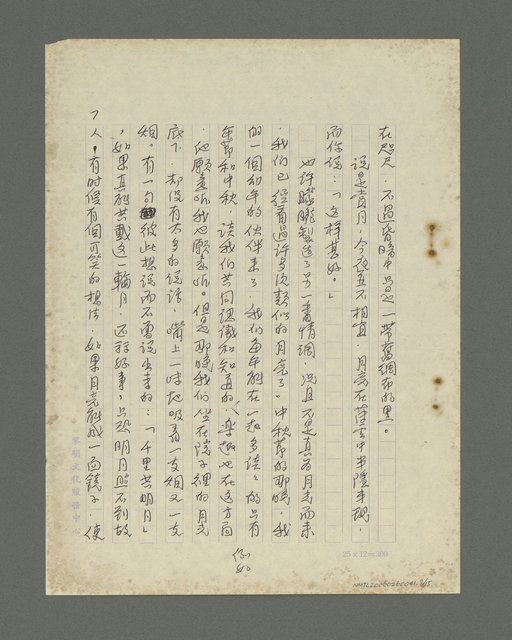 在咫尺,不過昏暗中只是一帶舊綢布的黑。
說是賞月,今夜並不相宜,月亮在薄雲中半隱半現,
而你說:「這樣甚好。」
也許朦朧製造了另一番情調,況且不是真為月亮而來
,我們已經看過許多次類似的月亮了。中秋節的那晚,我
的一個幼年的伙伴來了,我們每年能在一起多談談的只有
年節和中秋,談我們共同認識和知道的,樂趣也在這方面
,他願意聽我也願意聽。但是那晚我們坐在院子裡的月亮
底下,却沒有太多的說話,嘴上一味地吸着一支烟又一支
烟。有一句彼此想說而不曾說出來的:「千里共明月」
,如果真能共戴這一輪月,還算好事,只恐明月照不到故
人,有時候有個可笑的想法,如果月亮能成一面鏡子,使
你如
25×12=300
黎明文化服務中心